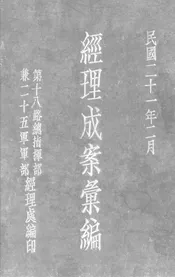 民國二十一年二月
經理成案彙編
第十八路總指揮部
兼二十五軍軍部
經理處編印